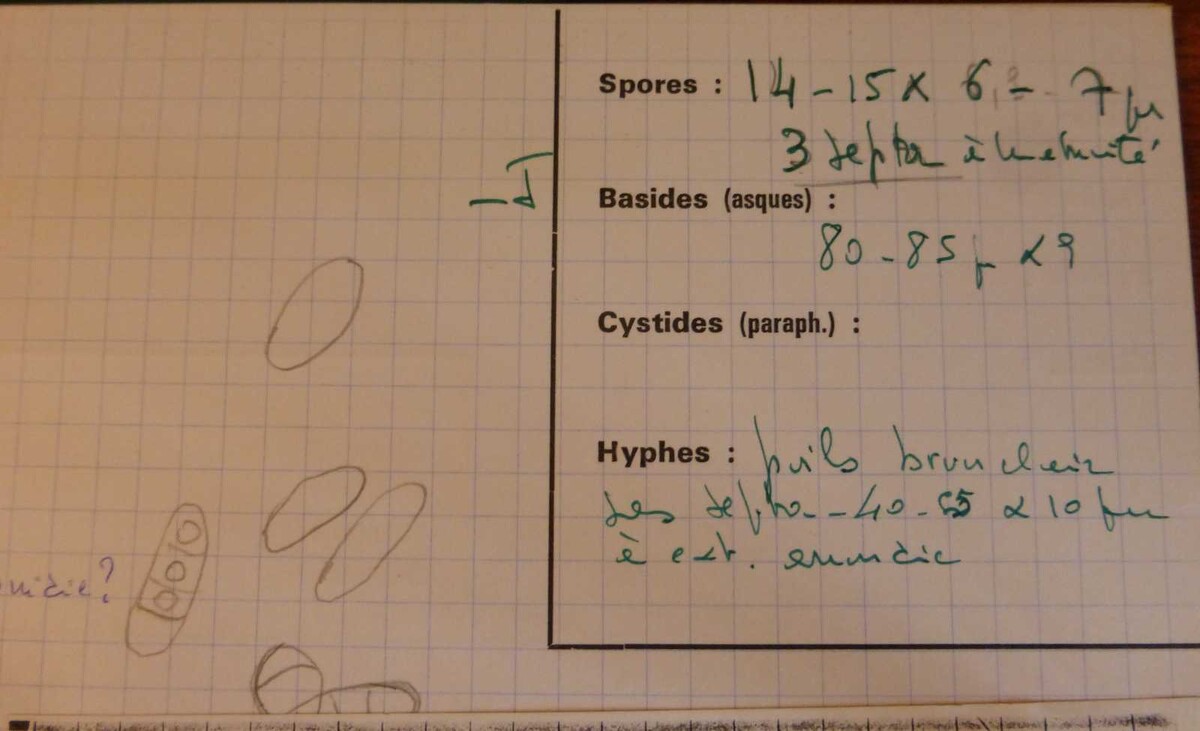 Spores : 14 – 15 x 6 – 7 µ
3 septa à la maturité
– I
Basides (asques) :
80 – 85 µ x 9
Cystides (paraph.) :
Hyphes : poils brun clair
septa – 40 – x 10 µm
à ext. amincie
?